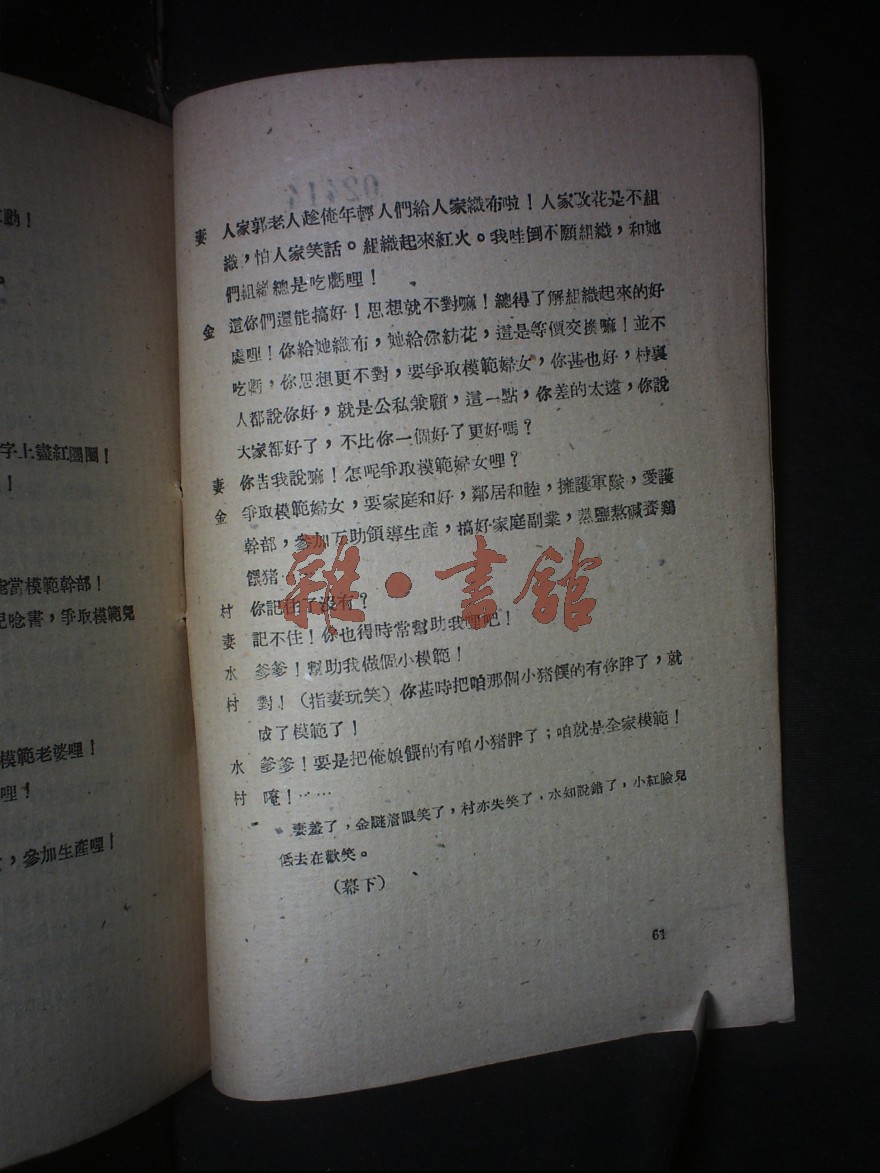 動！
。
字上盡紅團圈！
！
能當模範幹部！
記唸書，爭取模範兒
模範老婆哩！
哩！
，參加生產哩！
02414
妻 人家郭老人趁俺年輕人們給人家織布啦！人家改花是不組
織，怕人家笑話。組織起來紅火。我哇倒不願組織，和她
們組織總是吃虧哩！
金 這你們還能搞好！思想就不對嘛！總得了解組織起來的好
處哩！你給她織布，她給你紡花，這是等價交換嘛！並不
吃虧，你思想更不對，要爭取模範婦女，你甚也好，村裏
人都說你好，就是公私兼顧，這一點，你差的太遠，你說
大家都好了，不比你一個好了更好嗎？
妻 你告我說嘛！怎呢爭取模範婦女哩？
金 爭取模範婦女，要家庭和好，鄰居和睦，擁護軍隊，愛護
幹部，參加互助領導生產，搞好家庭副業，熬鹽熬碱養鷄
餵猪…
村 你記住了沒有？
妻 記不住！你也得時常幫助我哩吧！
水 爹爹！幫助我做個小模範！
村 對！（指妻玩笑）你甚時把咱那個小猪餵的有你胖了，就
成了模範了！
水 爹爹！要是把俺娘餵的有咱小猪胖了；咱就是全家模範！
村 唵！……
妻羞了，金瞇着眼笑了，村亦失笑了，水知說錯了，小紅臉兒
低去在歡笑。
（幕下）
61
雜·書館